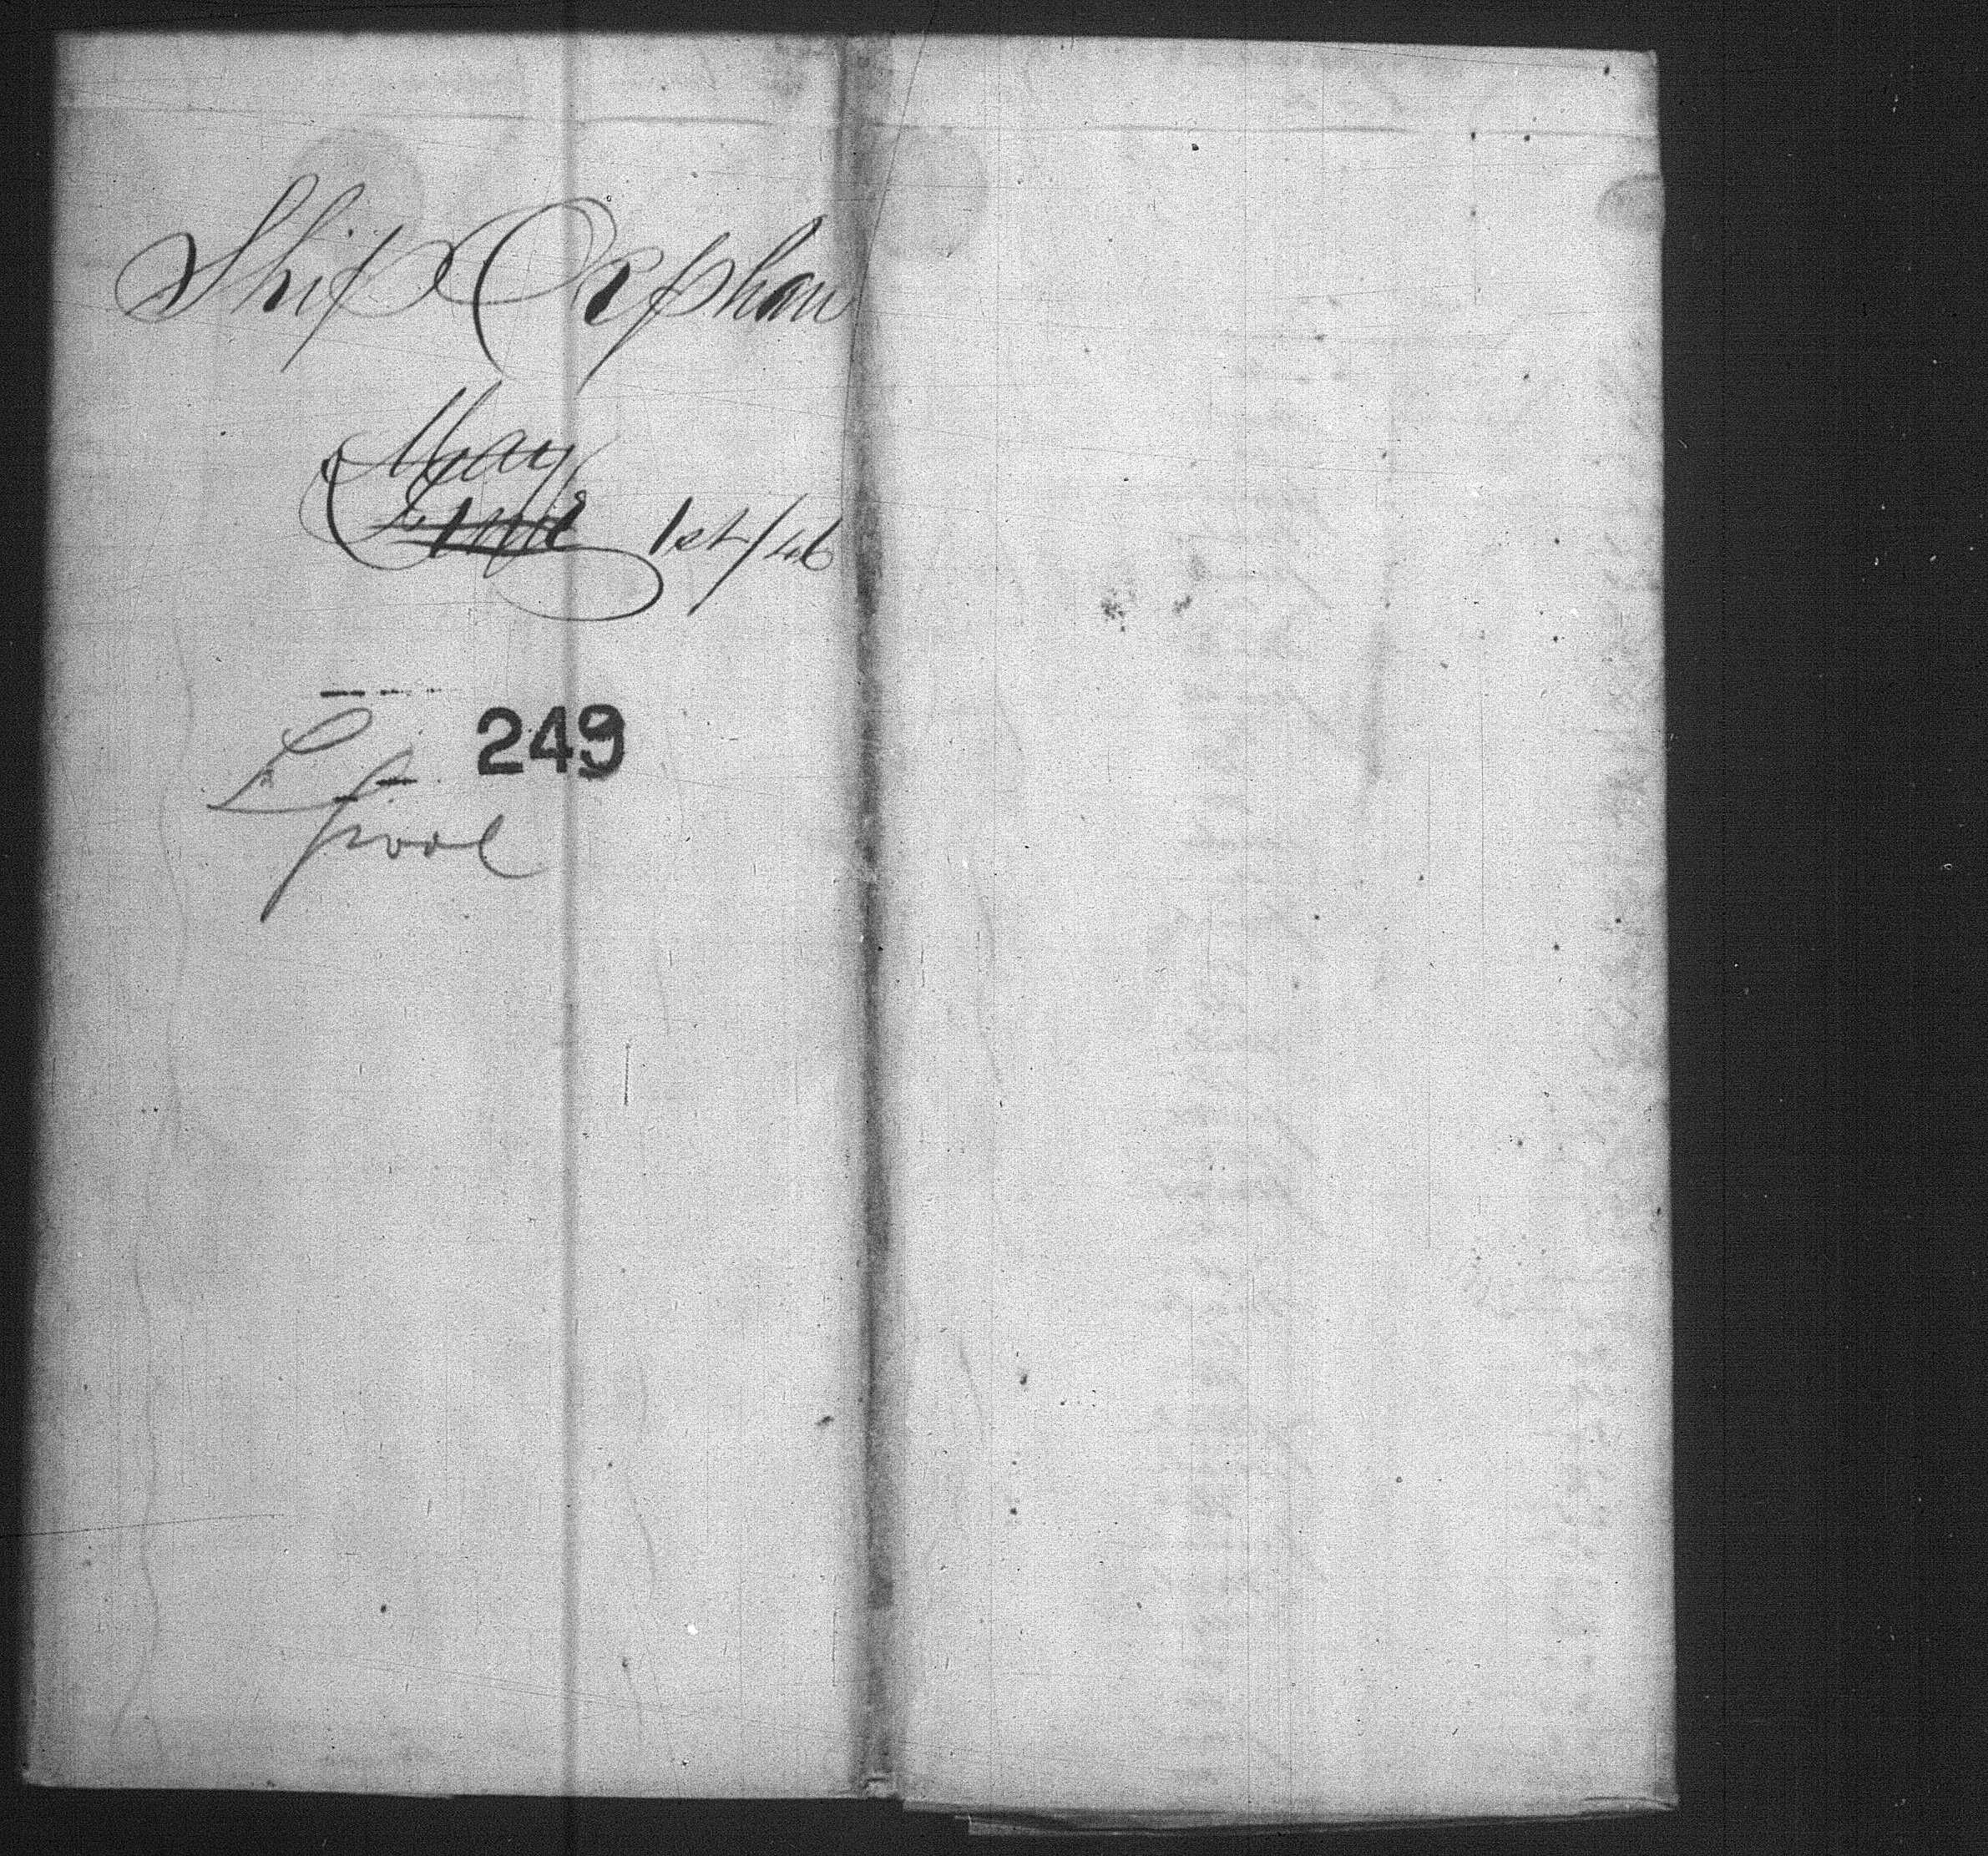 Ship Orphan
May
June 1st/46
249
L pool